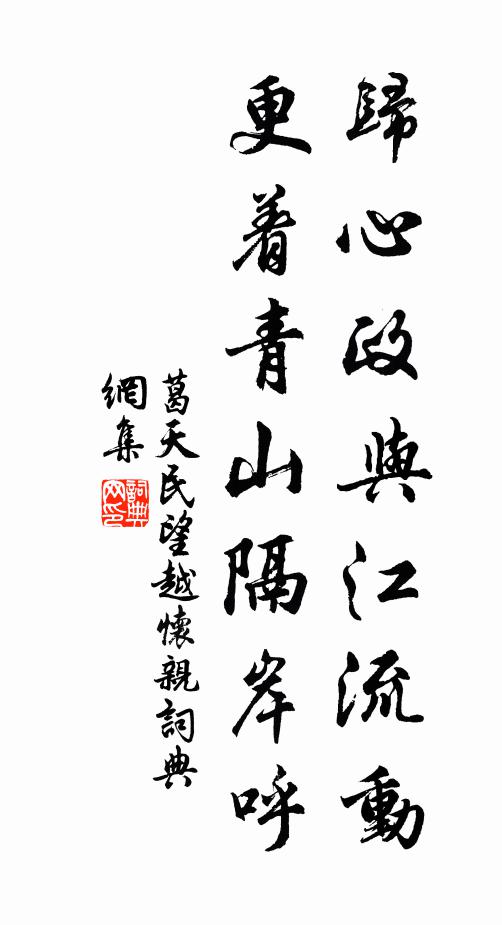 歸心政與江流動
更着青山隔岸呼
葛天民望越懷親詞典
網集
詞典
网印